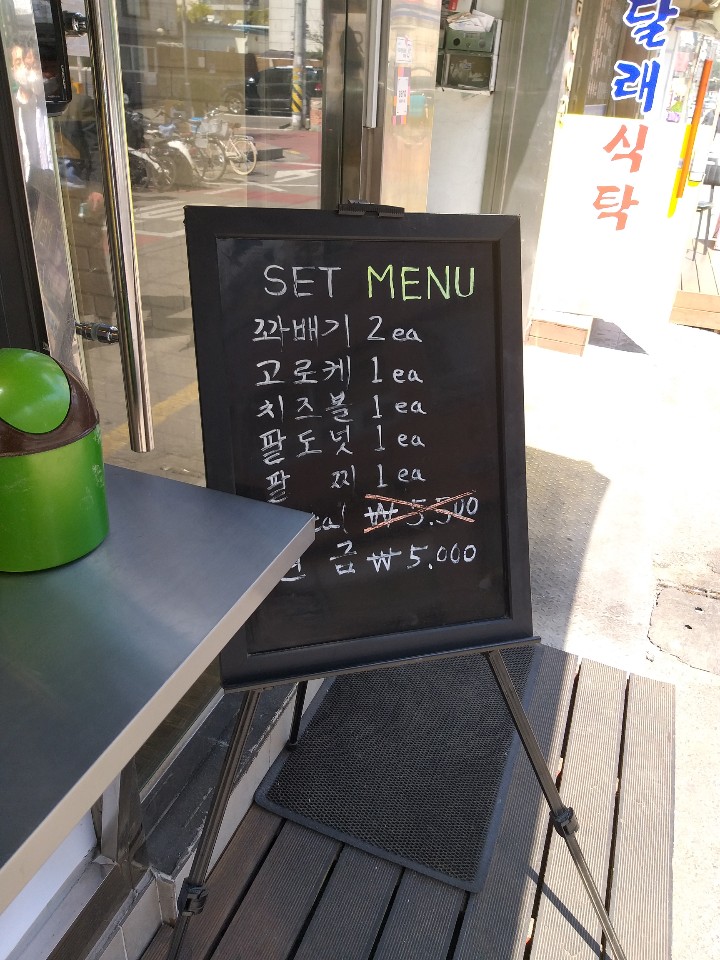 SET MENU
꽈배기 2ea
고로케 1ea
치즈볼 1ea
팥도넛 1ea
팥 찌 1ea
tal ₩ 5.500
금 ₩ 5.000
달래
식탁